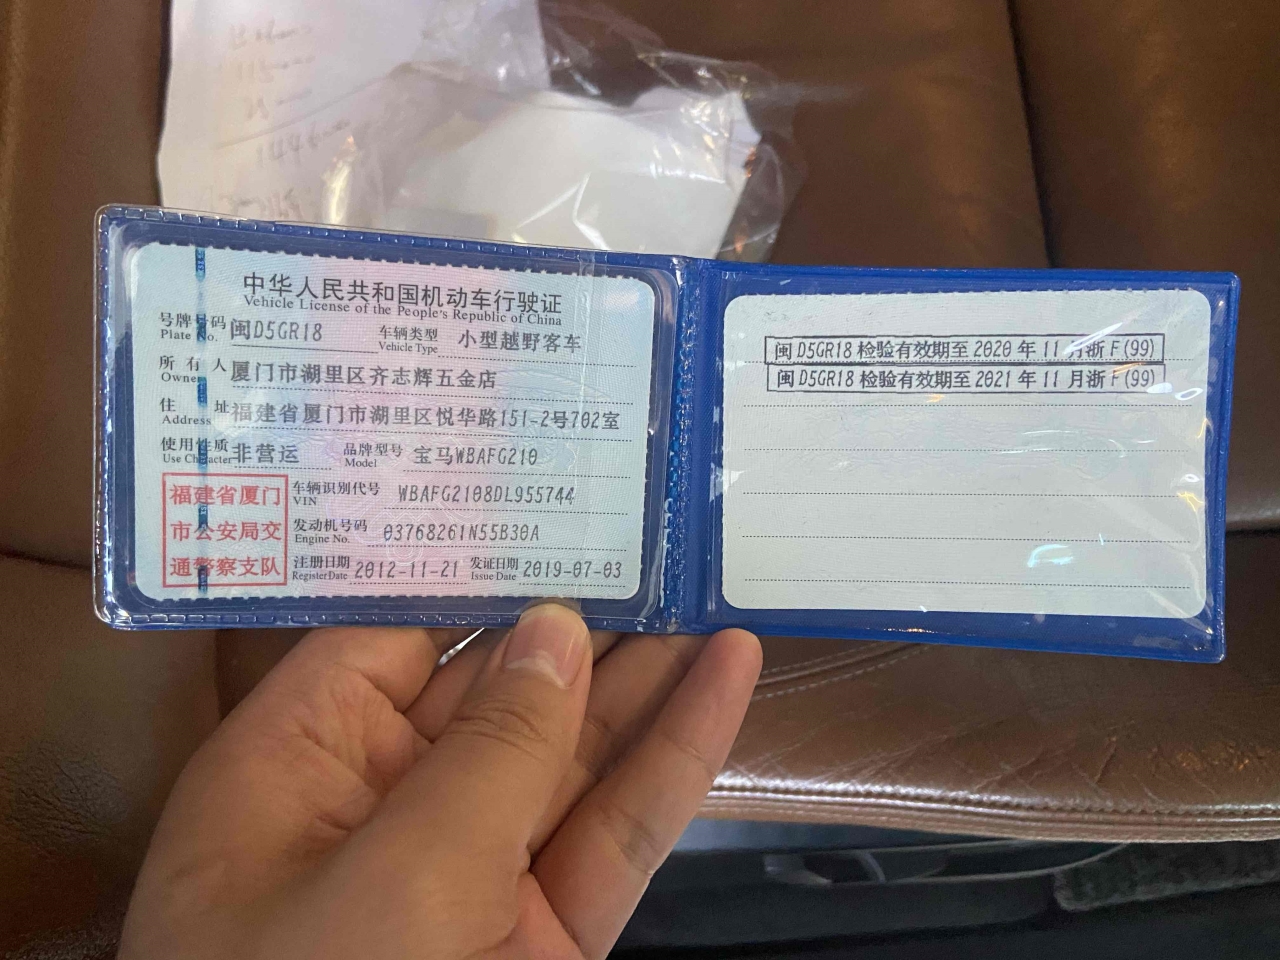 中华人民共和国机动车行驶证
Vehicle License of the People's Republic of China
号牌号码 闽D5GR18 车辆类型 小型越野客车
Plate No. Vehicle Type
所有人 厦门市湖里区齐志辉五金店
Owner
住址 福建省厦门市湖里区悦华路151-2号702室
Address
使用性质 非营运 品牌型号 宝马WBAFG210
Use Character Model
福建省厦门
市公安局交
通警察支队
车辆识别代号 WBAFG2108DL955744
VIN
发动机号码 03768261N55B30A
Engine No.
注册日期 2012-11-21 发证日期 2019-07-03
Register Date Issue Date
闽D5GR18检验有效期至2020年11月浙F(99)
闽D5GR18检验有效期至2021年11月浙F(99)